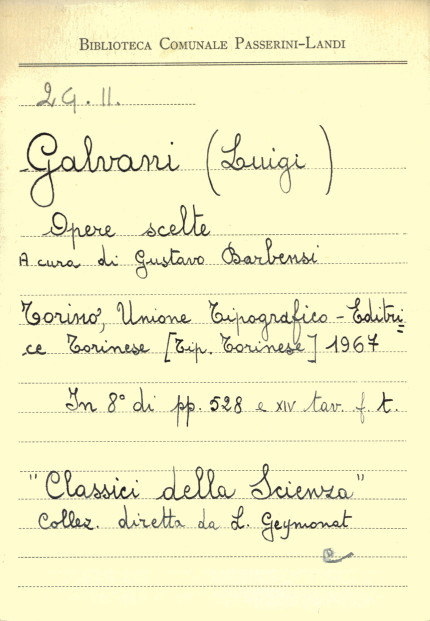 BIBLIOTECA COMUNALE PASSERINI-LANDI
2G.11.
Galvani (Luigi)
Opere scelte
A cura di Gustavo Barbensi
Torino, Unione Tipografico-Editri=
ce Torinese [Tip. Torinese] 1967
In 8° di pp. 528 e XIV tav. f. t.
"Classici della Scienza"
Collez. diretta da L. Geymonat